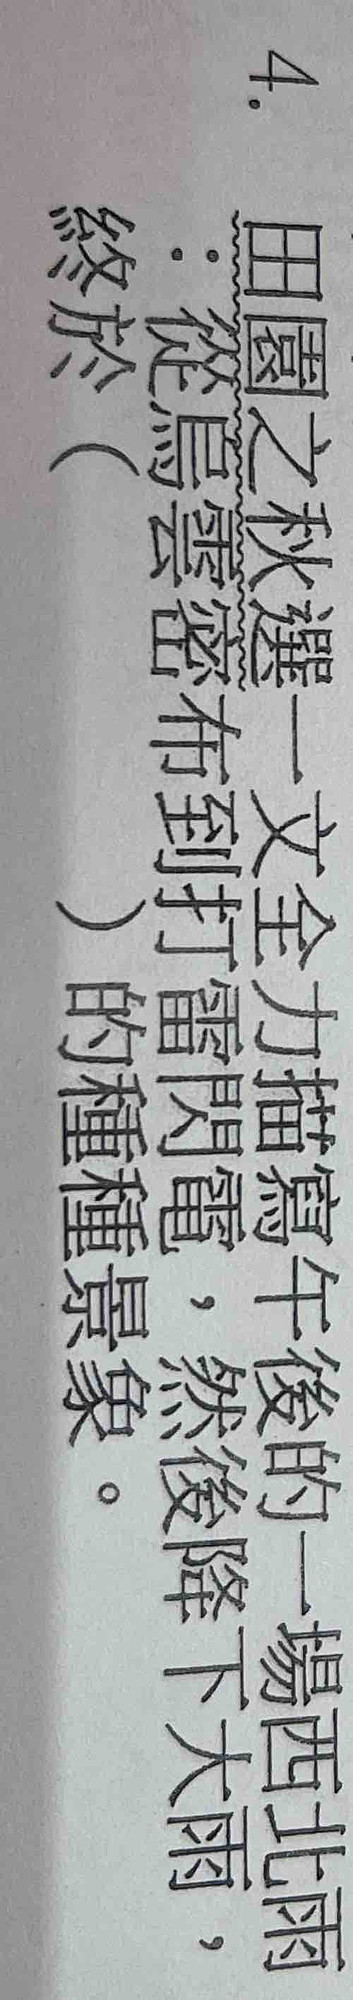 4. 田園之秋選一文全力描寫午後的一場西北雨
：從烏雲密布到打雷閃電，然後降下大雨，
終於（　　　　）的種種景象。